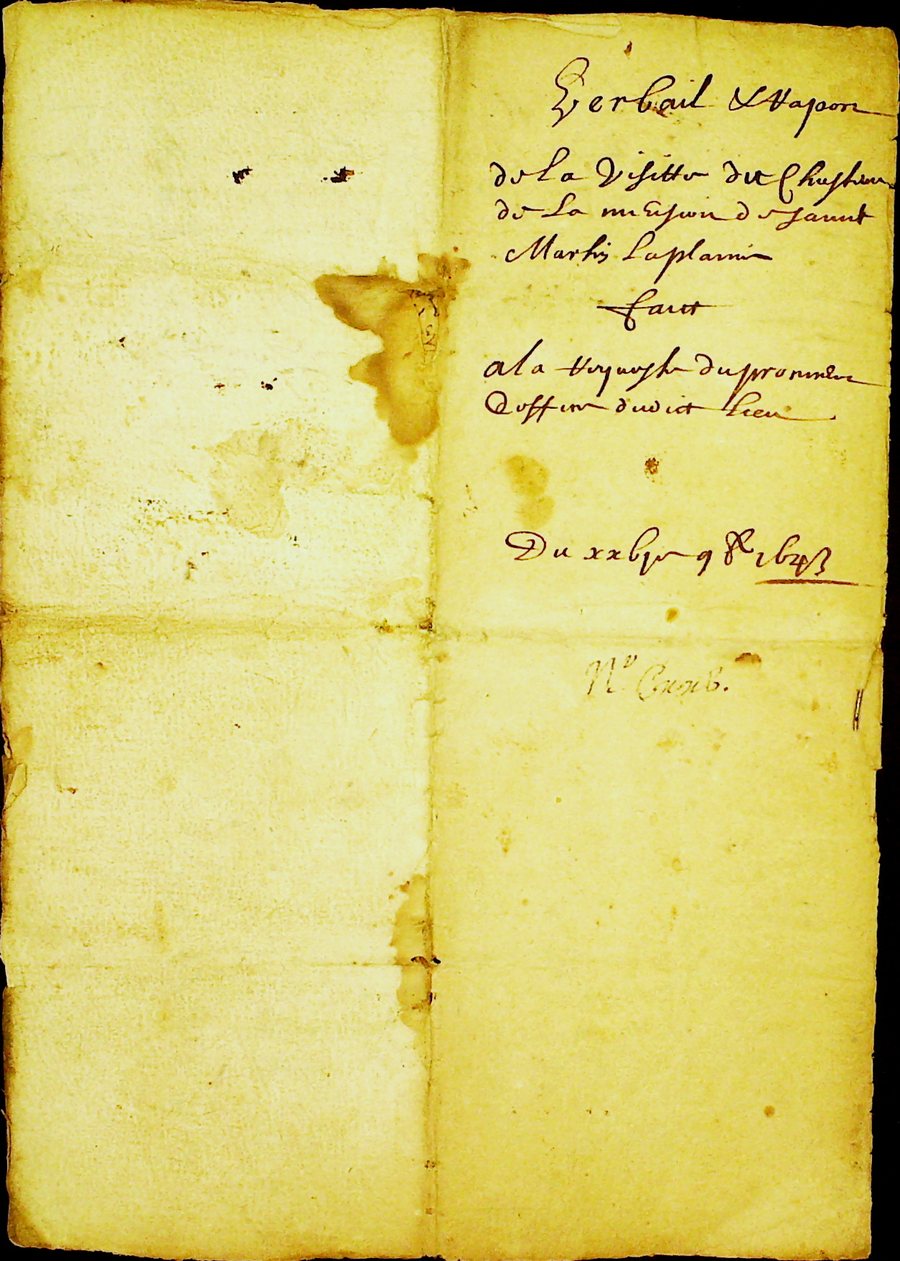 Verbail & Rapon
de la Visitte du Chasteau
de La maison de sainct
Martin Laplaine
faict
a la Requeste du procureur
D'office dudict Lieu
Du xxbje 9bre 1643
No